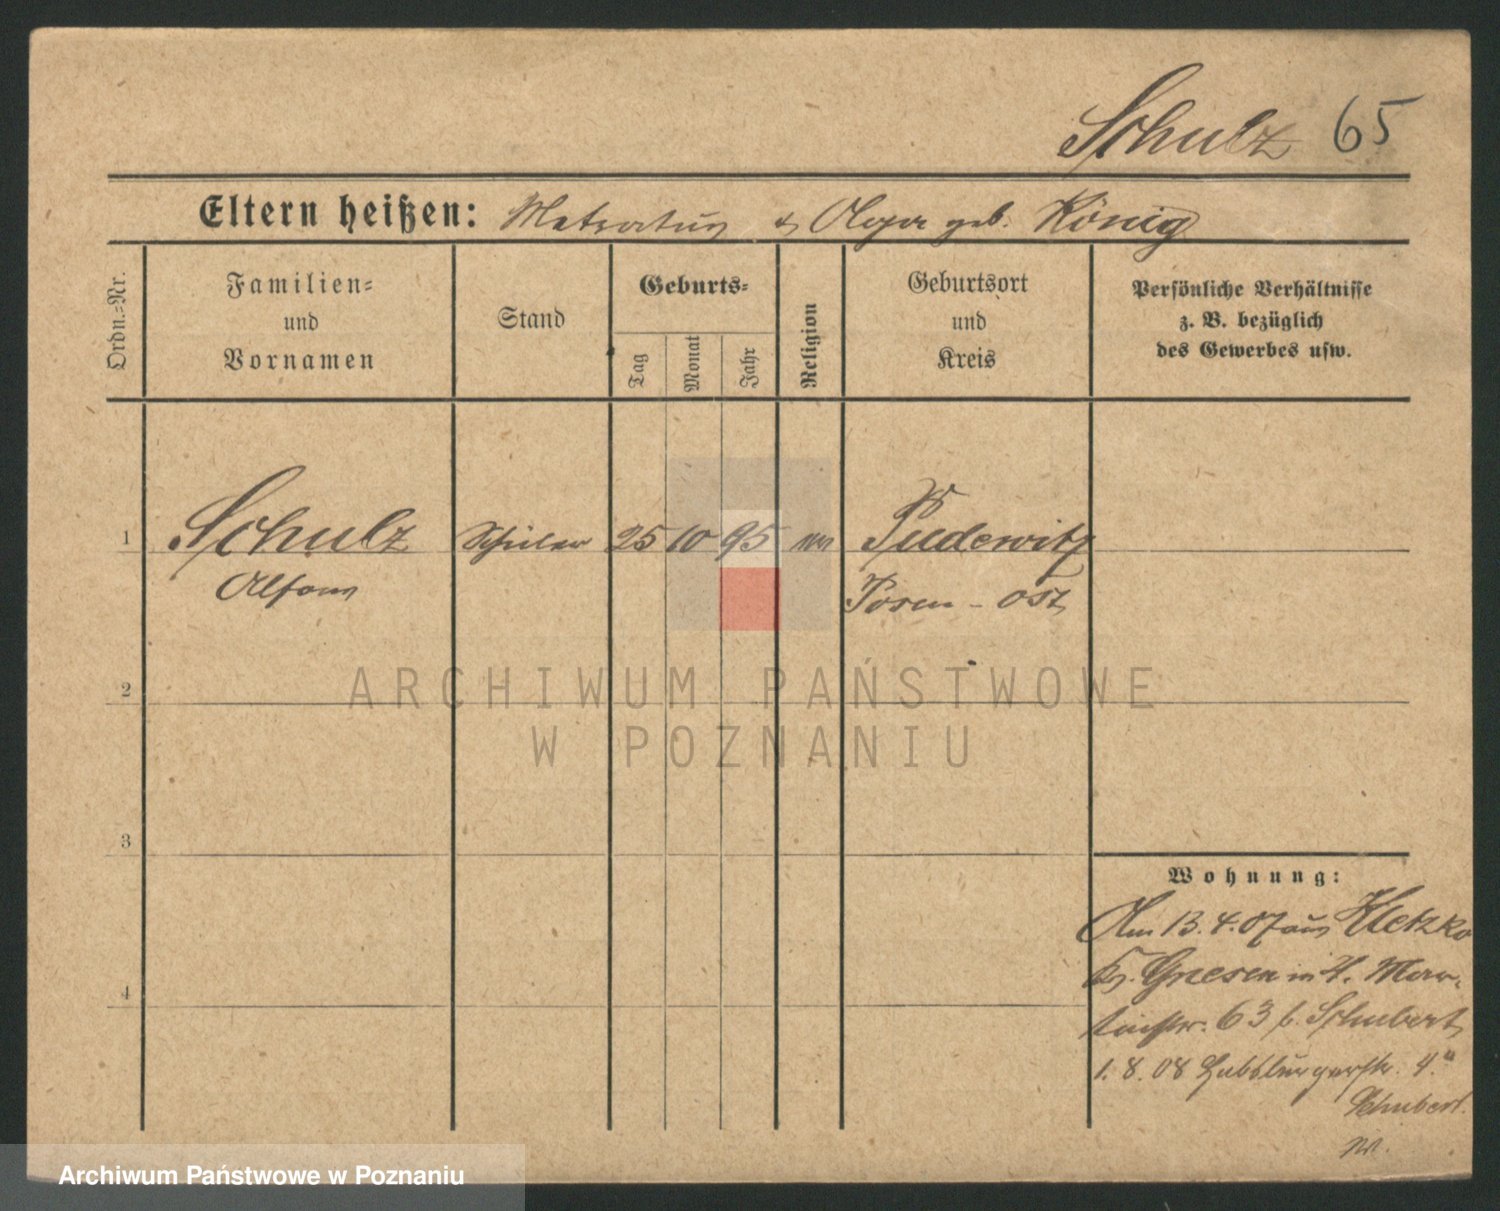 Schulz 65
Eltern heißen: & Olga geb. König
Ordn.=Nr.
Familien=
und
Vornamen
Stand
Geburts=
Tag
Monat
Jahr
Religion
Geburtsort
und
Kreis
Persönliche Verhältnisse
z. B. bezüglich
des Gewerbes usw.
1 Schulz Schüler 25 10 95 Pudewitz
Alfons Posen - Ost
2
3
4
Wohnung:
Am 13.4.07 aus Kletzko
Kr. Gnesen in St. Mar-
tinstr. 63 b. Schubert
1. 8. 08 Habsburgerstr. 4.
Schubert.
ARCHIWUM PAŃSTWOWE
W POZNANIU
Archiwum Państwowe w Poznaniu